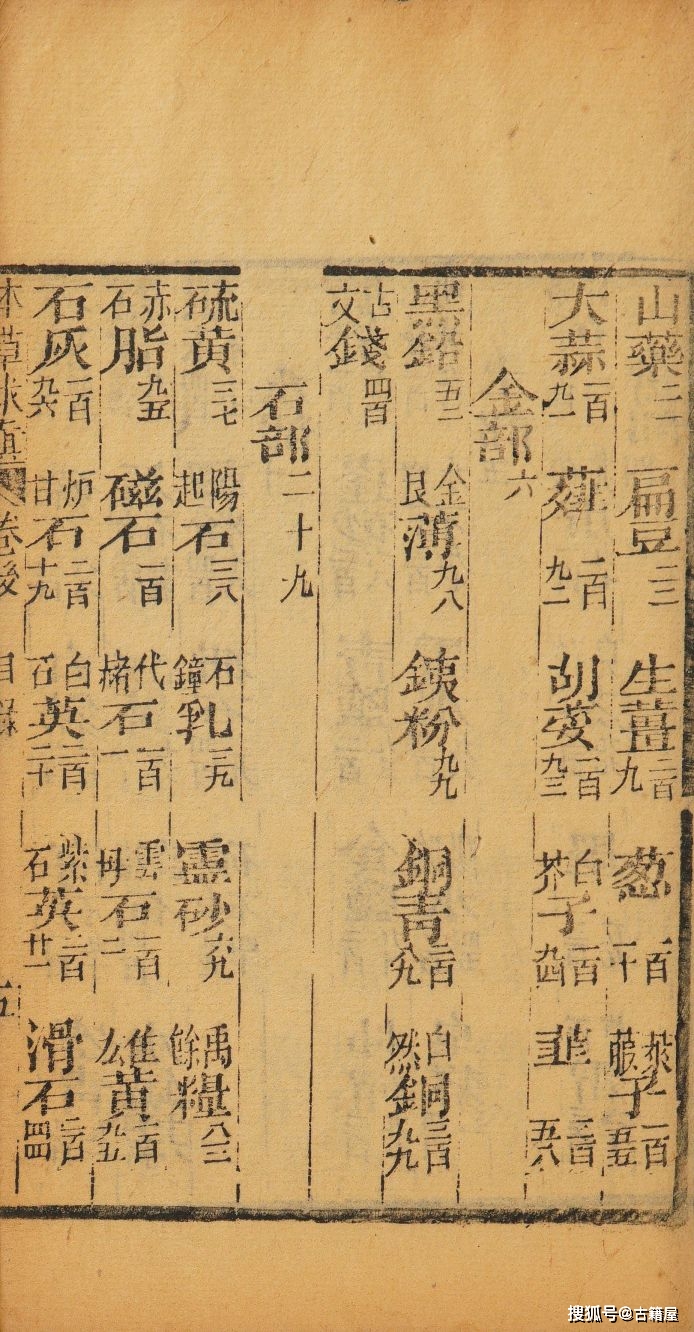 山藥二二 扁豆二三 生薑二百九 葱一百十 菔子一百五五
大蒜一百九一 薤一百九二 胡荽一百九三 白芥子一百九四 韭三百五八
金部六
黑鉛五二 金艮薄九八 銕粉九九 銅青二百八九 白然銅三百九九
古文錢四百
石部二十九
石硫黄三七 陽起石三八 石鐘乳三九 靈砂六九 禹餘糧八三
赤石脂九五 磁石一百 代赭石一百一 雲母石一百二 雄黄二百九五
石灰一百九六 炉甘石二百十九 白石英二百二十 紫石英二百廿一 滑石二百四四
本草求真 卷後 目錄 五
搜狐号@古籍屋